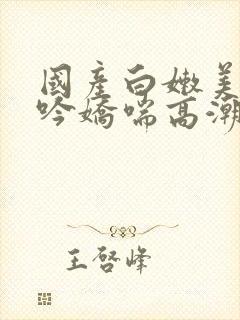 國產白嫩美
吟嬌喘高潮
王啓峰